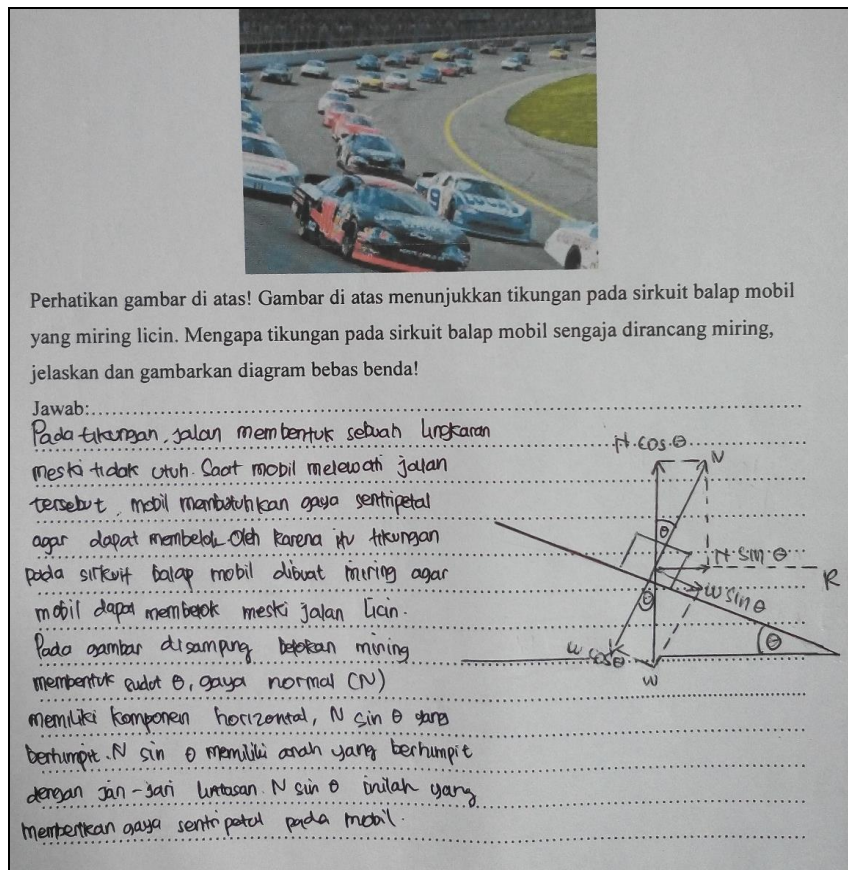 Perhatikan gambar di atas! Gambar di atas menunjukkan tikungan pada sirkuit balap mobil
yang miring licin. Mengapa tikungan pada sirkuit balap mobil sengaja dirancang miring,
jelaskan dan gambarkan diagram bebas benda!
Jawab:
Pada tikungan, jalan membentuk sebuah lingkaran
meski tidak utuh. Saat mobil melewati jalan
tersebut, mobil membutuhkan gaya sentripetal
agar dapat membelok. Oleh karena itu tikungan
pada sirkuit balap mobil dibuat miring agar
mobil dapat membelok meski jalan licin.
Pada gambar disamping belokan miring
membentuk sudut θ, gaya normal (N)
memiliki komponen horizontal, N sin θ yang
berhimpit. N sin θ memiliki arah yang berhimpit
dengan jari-jari lintasan. N sin θ inilah yang
memberikan gaya sentripetal pada mobil.
N cos θ
N
θ
N sin θ
R
W sin θ
θ
θ
W cos θ
W